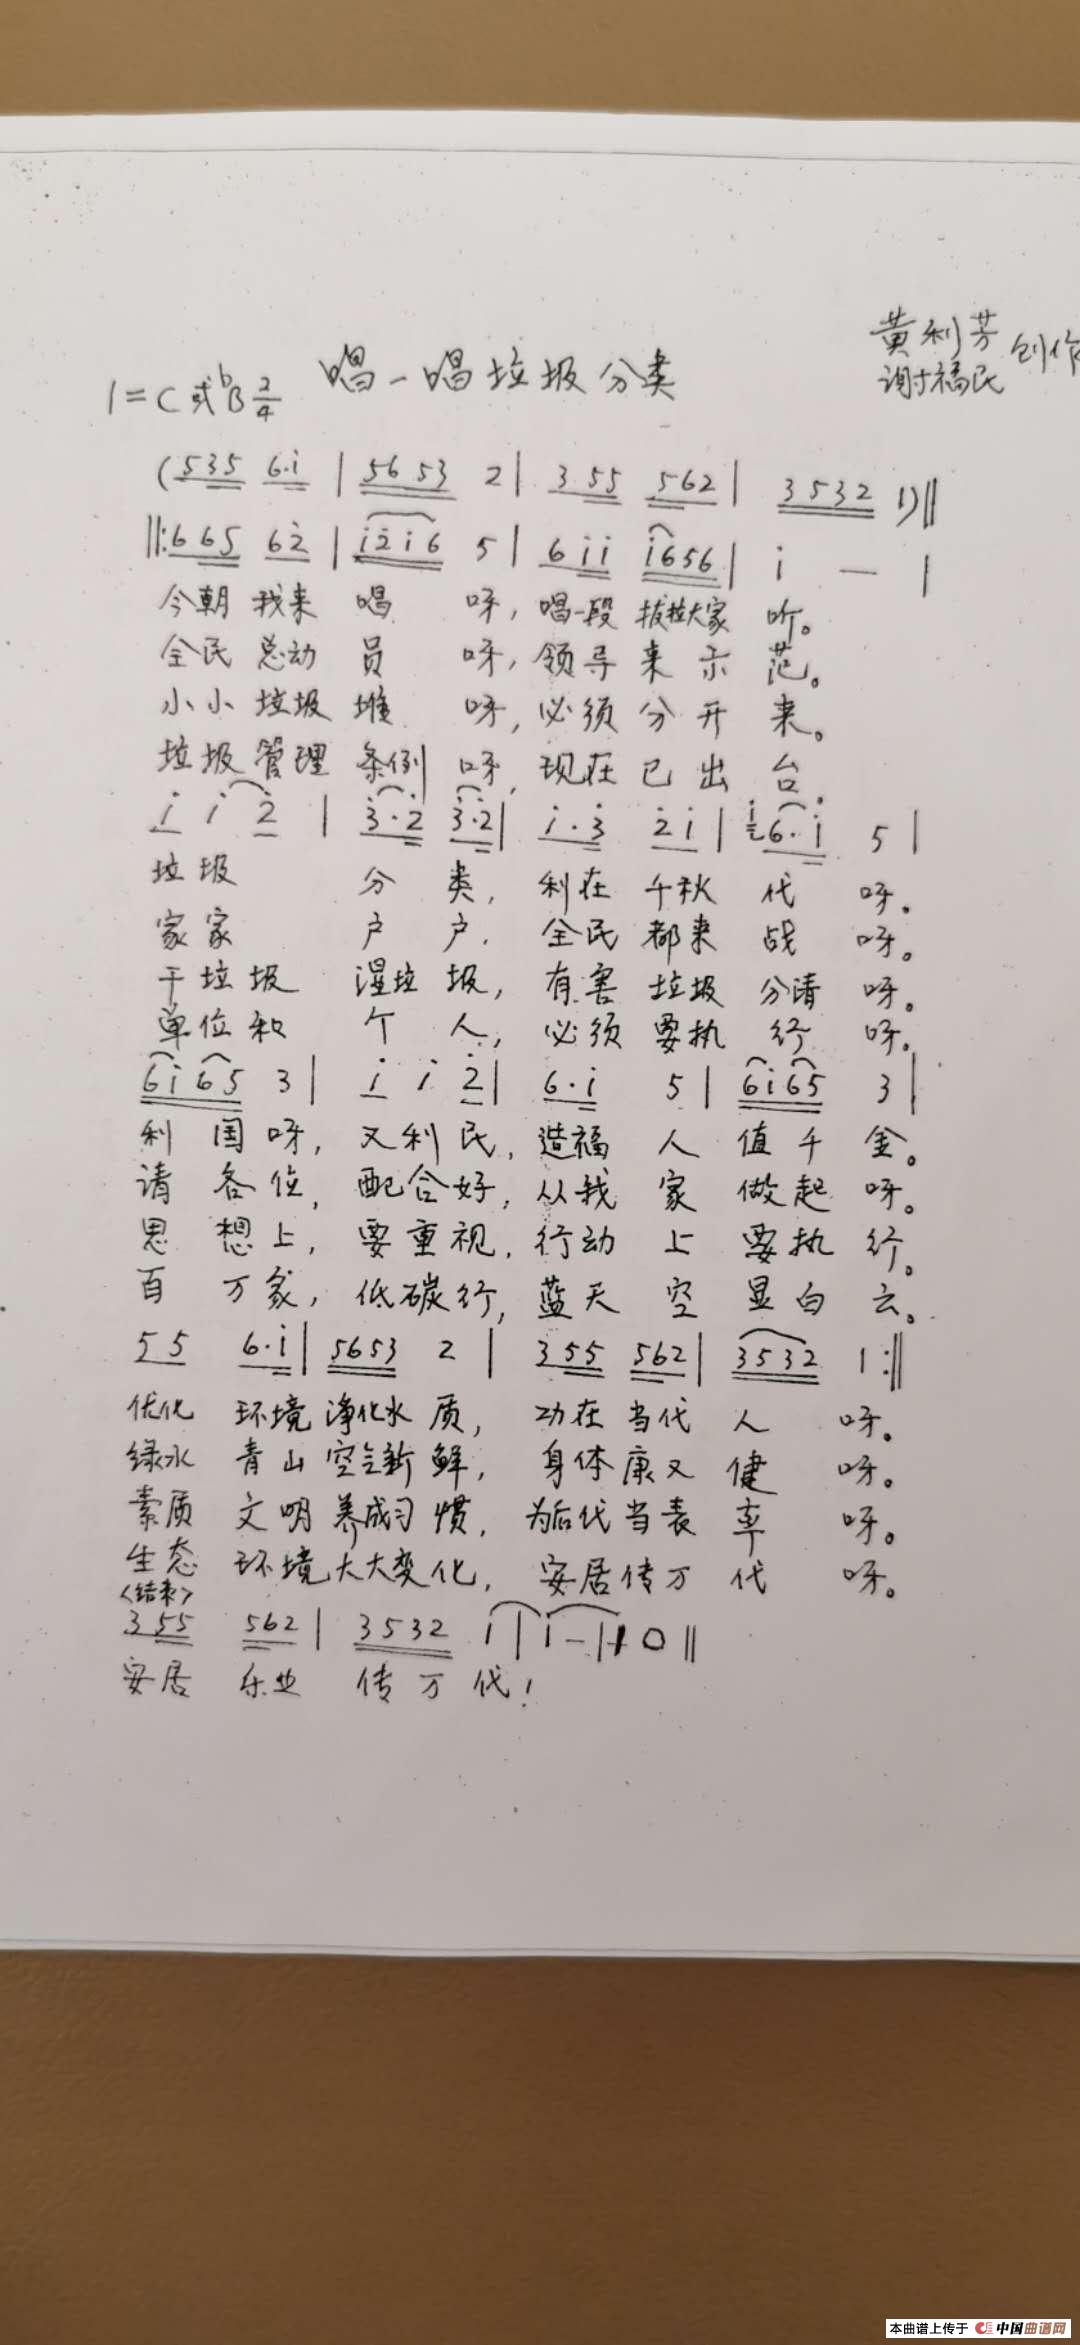 唱一唱垃圾分类
黄利芳
谢福民 创作
1=C或bB 2/4
(535 6·i | 56 53 2 | 3 55 562 | 3532 1) ||
||: 6 65 6 2̇ | i 2̇ i 6 5 | 6 i i i656 | i — |
今朝我来唱呀,唱一段拨拉大家听。
全民总动员呀,领导来示范。
小小垃圾堆呀,必须分开来。
垃圾管理条例呀,现在已出台.
i i 2̇ | 3̇·2̇ 3̇·2̇ | i·3̇ 2̇ i | i 6·i 5 |
垃圾分类,利在千秋代呀.
家家户户.全民都来战呀。
干垃圾湿垃圾,有害垃圾分清呀。
单位和个人,必须要执行呀.
6i 65 3 | i i 2̇ | 6·i 5 | 6i65 3 |
利国呀,又利民,造福人值千金。
请各位,配合好,从我家做起呀。
思想上,要重视,行动上要执行。
百万家,低碳行,蓝天空显白云。
5 5 6·i | 5653 2 | 3 55 562 | 3532 1 :||
优化环境净化水质,功在当代人呀.
绿水青山空气新鲜,身体康又健呀.
素质文明养成习惯,为后代当表率呀。
生态环境大大变化,安居传万代呀。
<结束>
3 55 562 | 3532 i | i — | 1 0 ||
安居乐业传万代!
本曲谱上传于 中国曲谱网